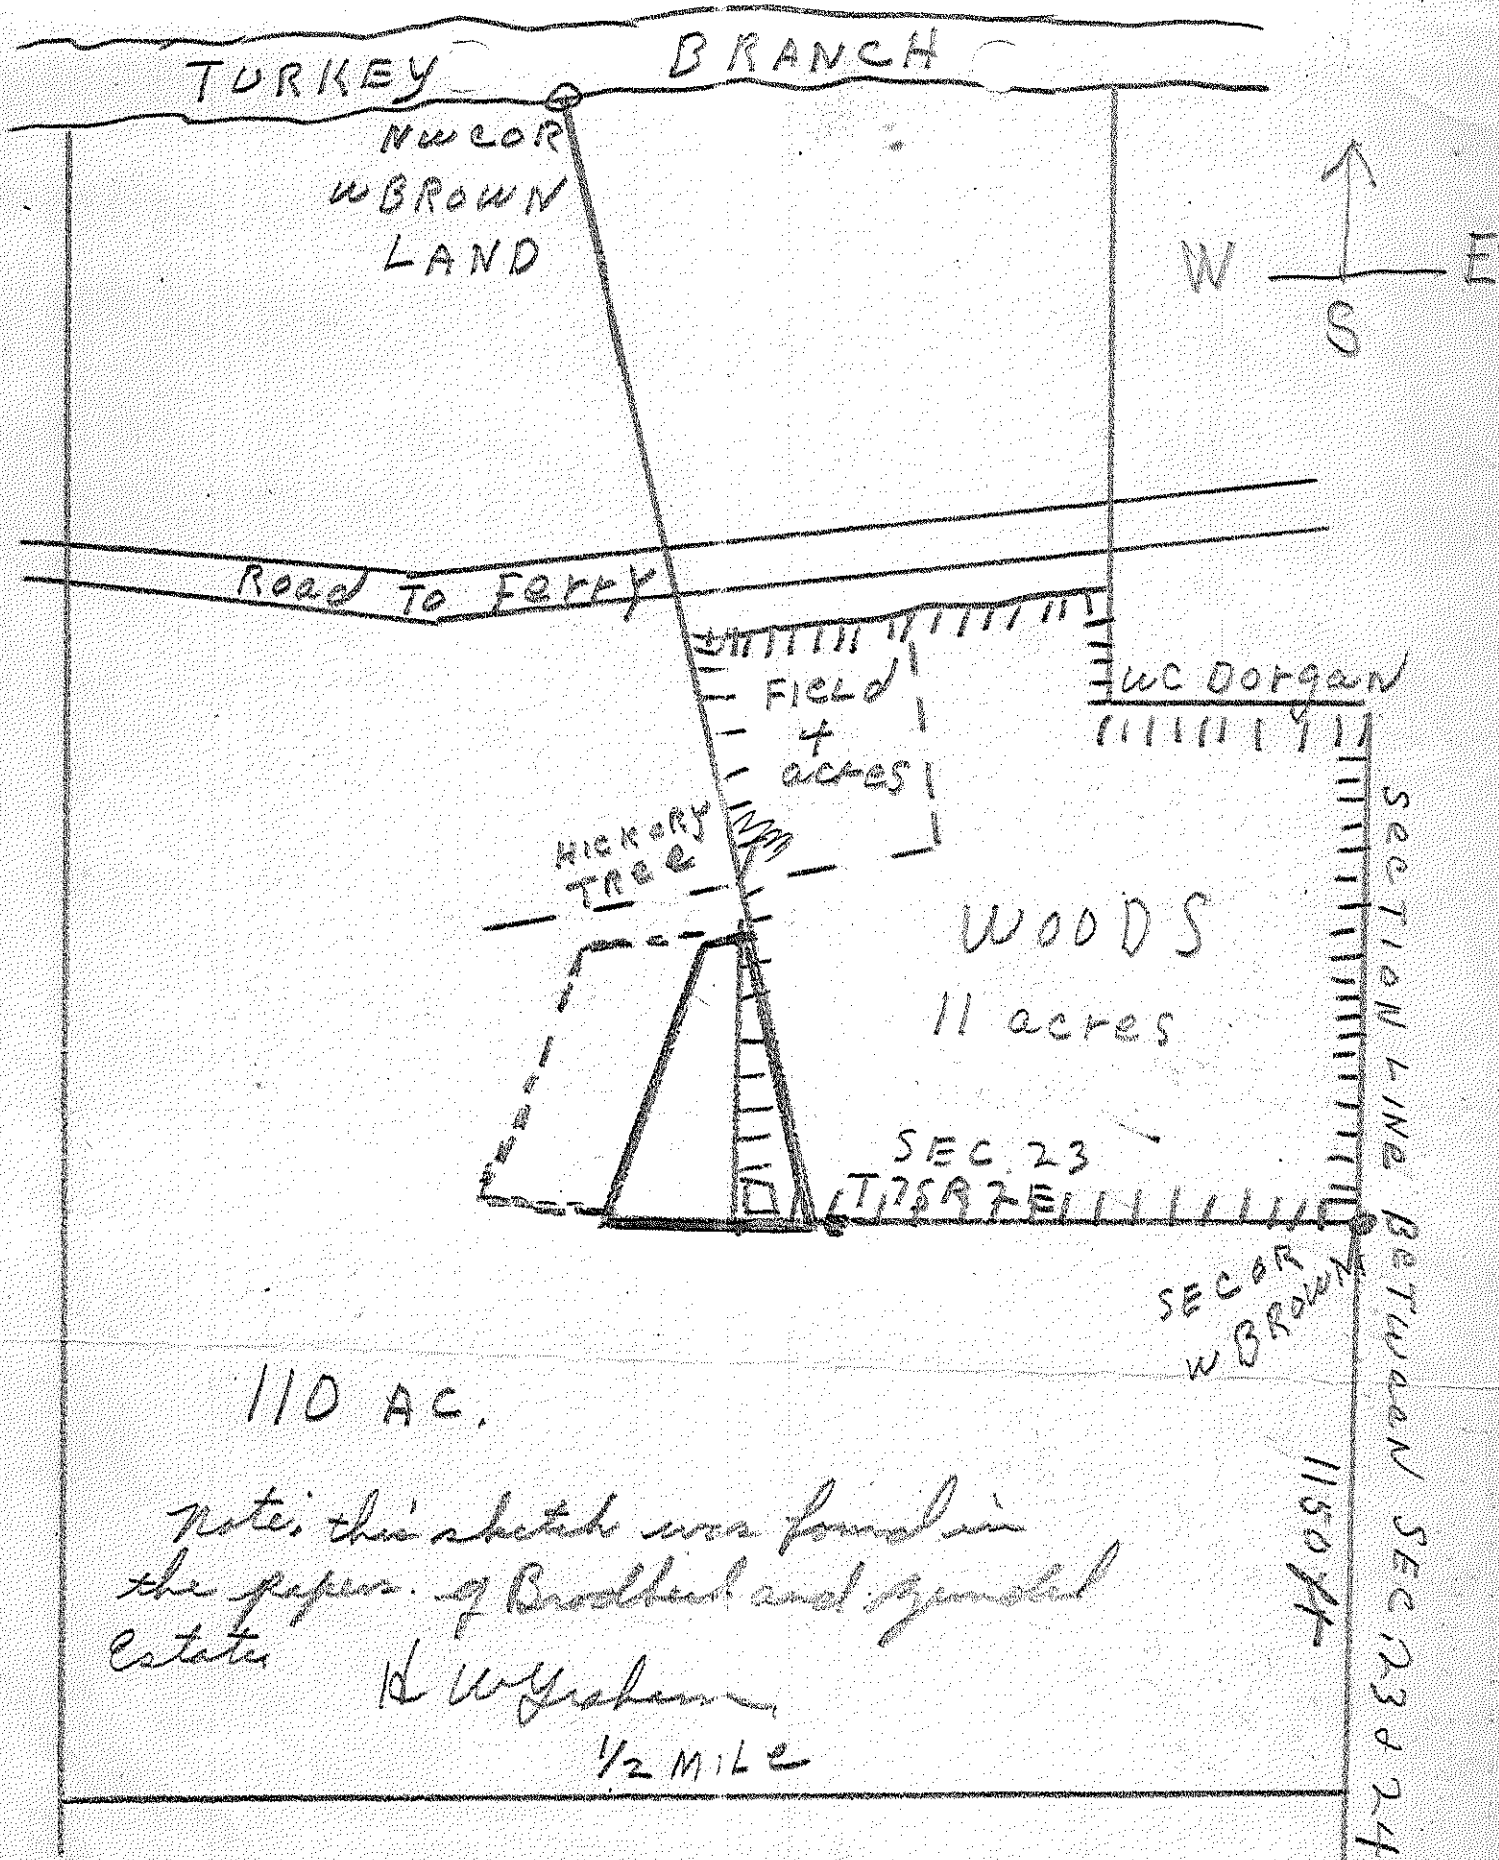 TURKEY BRANCH
NW COR
W BROWN
LAND
W E
S
Road To Ferry
WC Dorgan
FIELD
+
acres
HICKORY
TREE
WOODS
11 acres
SEC. 23
SE COR
W BROWN
SECTION LINE BETWEEN SEC 23 & 24
1150 ft
110 AC.
Note: this sketch was found in
the papers of and
Estate
H W Graham
1/2 MILE